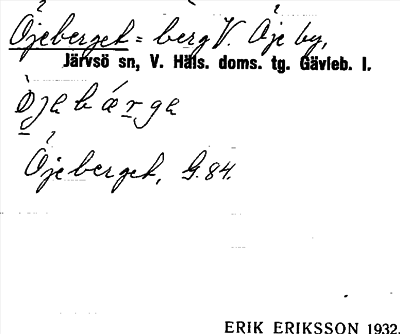 Öjeberget = berg V. Öje by,
Järvsö sn, V. Häls. doms. tg. Gävleb. l.
ò̱jabár̲ga
Öjeberget, G.84.
ERIK ERIKSSON 1932.